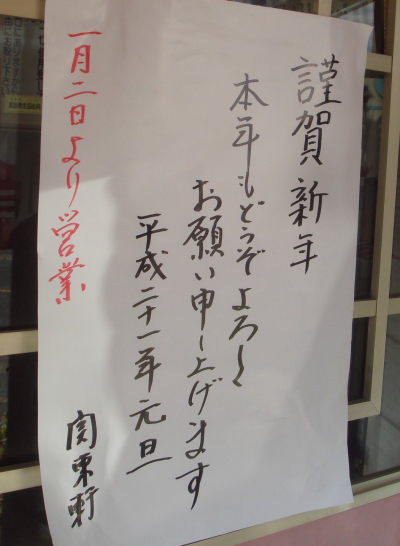 謹賀新年
本年もどうぞよろしく
お願い申し上げます
平成二十一年元旦
一月二日より営業
関東軒